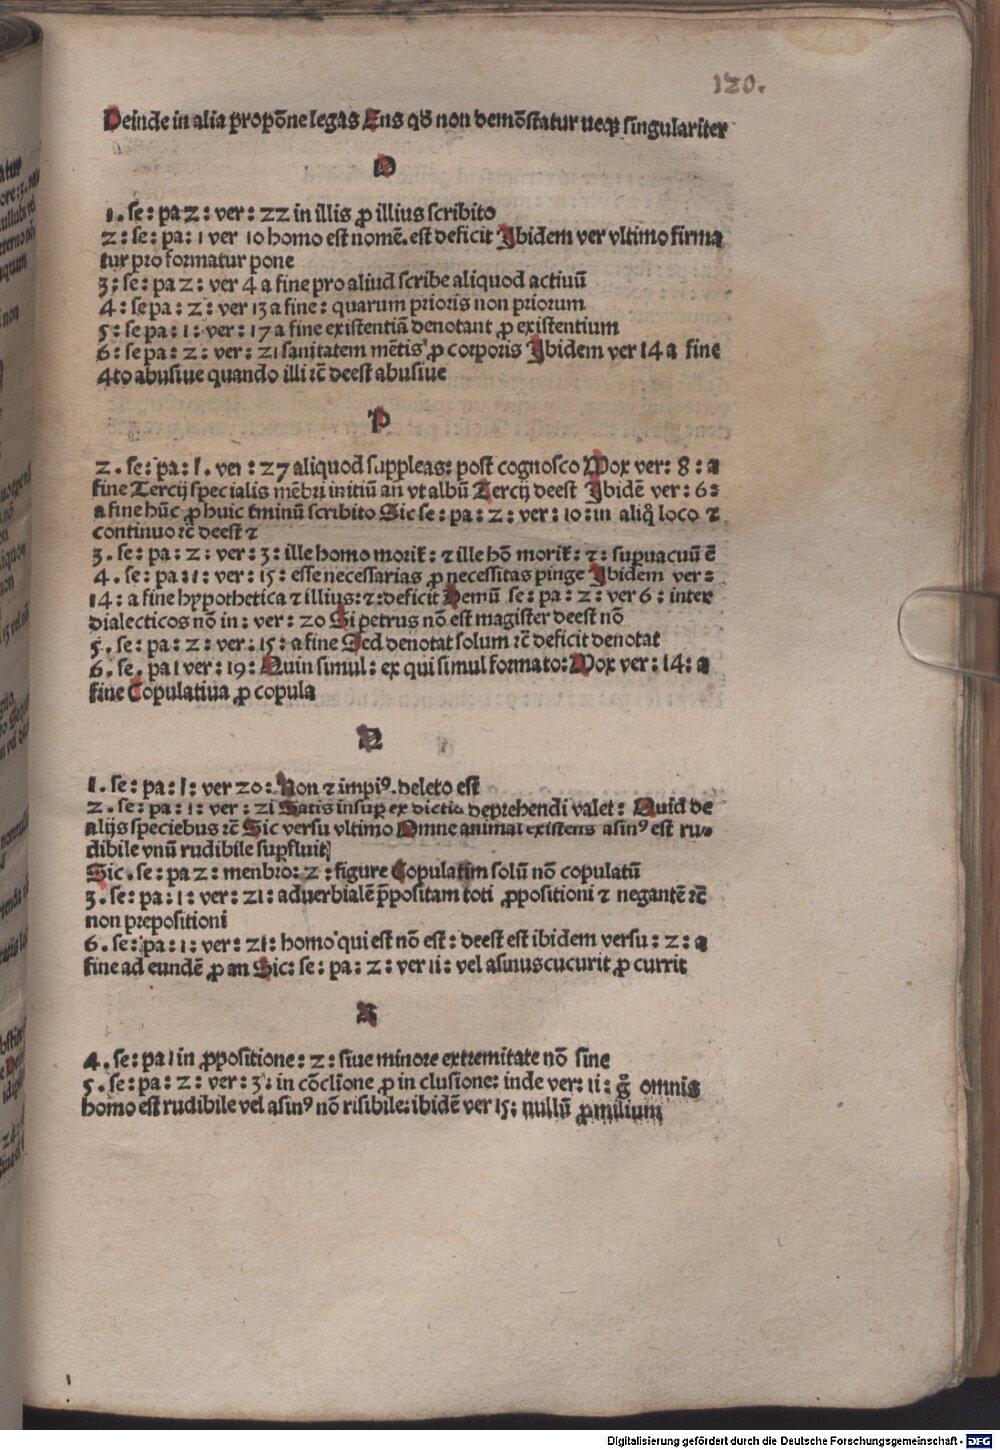 120.
Deinde in alia ꝓropõne legas Ens qđ non demõstatur neqꝫ singulariter
O
1. se: pa 2: ver: 22 in illis ꝓ illius scribito
2: se: pa: 1 ver 10 homo est nomē. est deficit Ibidem ver vltimo firma
tur pro formatur pone
3: se: pa 2: ver 4 a fine pro aliud scribe aliquod actiuū
4: se pa: 2: ver 13 a fine: quarum prioris non priorum
5: se pa: 1: ver: 17 a fine existentiā denotant ꝓ existentium
6: se pa: 2: ver: 21 sanitatem mētis ꝓ corporis Ibidem ver 14 a fine
4to abusiue quando illi ⁊c̄ deest abusiue
P
2. se: pa: 1. ver: 27 aliquod suppleas: post cognosco Mox ver: 8: a
fine Tercij specialis mēbri initiū an vt albū Tercij deest Ibidē ver: 6:
a fine hūc ꝓ huic t̄minū scribito Sic se: pa: 2: ver: 10: in aliq̊ loco ⁊
continuo ⁊c̄ deest ⁊
3. se: pa: 2: ver: 3: ille homo morit̄: ⁊ ille hō morit̄: ⁊: supuacuū ē
4. se: pa: 1: ver: 15: esse necessarias ꝓ necessitas pinge Ibidem ver:
14: a fine hypothetica ⁊ illius: ⁊: deficit Demū se: pa: 2: ver 6: inter
dialecticos nō in: ver: 20 Si petrus nō est magister deest nō
5. se: pa: 2: ver: 15: a fine Sed denotat solum ⁊c̄ deficit denotat
6. se. pa 1 ver: 19: Quin simul: ex qui simul formato: Mox ver: 14: a
fine Copulatiua ꝓ copula
Q
1. se: pa: 1: ver 20: Non ⁊ impiꝰ. deleto est
2. se: pa: 1: ver: 21 Satis insup ex dictis deprehendi valet: Quid de
alijs speciebus ⁊c̄ Sic versu vltimo Omne animal existens asinꝰ est ru⸗
dibile vnū rudibile supfluit
Sic. se: pa 2: menbro: 2: figure Copulatim solū nō copulatū
3. se: pa: 1: ver: 21: aduerbialē p̄positam toti ꝓpositioni ⁊ negantē ⁊c̄
non prepositioni
6. se: pa: 1: ver: 21: homo qui est nō est: deest est ibidem versu: 2: a
fine ad eundē ꝓ an Sic: se: pa: 2: ver 11: vel asinus cucurit ꝓ currit
R
4. se: pa 1 in ꝓpositione: 2: siue minore extremitate nō sine
5. se: pa: 2: ver: 3: in cōclione ꝓ in clusione: inde ver: 11: g̊ omnis
homo est rudibile vel asinꝰ nō risibile: ibidē ver 15: nullū ꝓ milium
Digitalisierung gefördert durch die Deutsche Forschungsgemeinschaft - DFG